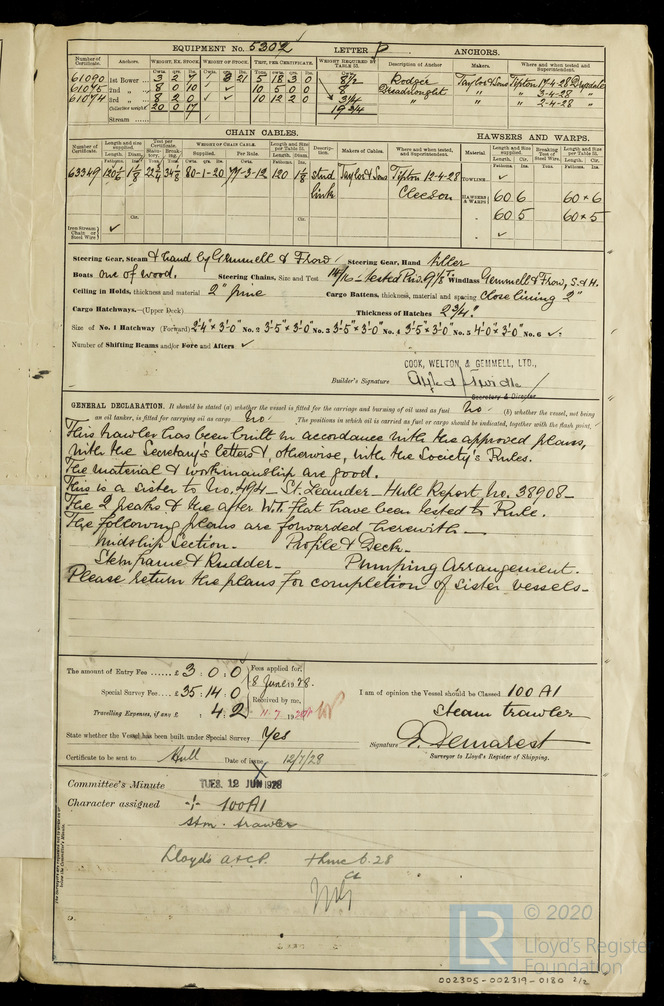 EQUIPMENT No. 5302 LETTER p ANCHORS.
Number of Certificate. Anchors. WEIGHT, EX. STOCK. WEIGHT OF STOCK. TEST, PER CERTIFICATE. WEIGHT REQUIRED BY TABLE 53. Description of Anchor Makers Where and when tested and Superintendent.
61090 1st Bower 8½ Rodger Taylor & Sons Tipton 17-4-28 Drysdale
61075 2nd 8 0 10 ✓ 10 5 0 0 8 Dreadnought " " 3-4-28 "
61074 3rd 8 2 0 ✓ 10 12 2 0 3¼ " " " 2-4-28 "
Collective weight 20 0 17 19¾
Stream
CHAIN CABLES. HAWSERS AND WARPS.
Number of Certificate. Length and size supplied. Test per Certificate WEIGHT OF CHAIN CABLE. Length and Size per Table 53. Description. Makers of Cables. Where and when tested, and Superintendent. Material Length and Size supplied. Breaking Test of Steel Wire. Length and Size per Table 53.
63349 80-1-20 77-3-12 120 1⅛ stud Taylor & Sons Tipton 12-4-28 TOWLINE ✓
link Cleeson HAWSERS & WARPS 60 6 60 × 6
" 60 5 60 × 5
Iron Stream Chain or Steel Wire ✓ " ✓
Steering Gear, Steam & hand by Gemmell & Frow Steering Gear, Hand tiller
Boats one of wood. Steering Chains, Size and Test Windlass Gemmell & Frow, S & H.
Ceiling in Holds, thickness and material 2" pine Cargo Battens, thickness, material and spacing close lining 2"
Cargo Hatchways.—(Upper Deck) Thickness of Hatches 2¾".
Size of No. 1 Hatchway (Forward) 2'4" × 3'0" No. 2 3'5" × 3'0" No. 3 3'5" × 3'0" No. 4 3'5" × 3'0" No. 5 4'0" × 3'0" No. 6 ✓
Number of Shifting Beams and/or Fore and Afters ✓
COOK, WELTON & GEMMELL, LTD.,
Builder's Signature
Secretary & Director
GENERAL DECLARATION. It should be stated (a) whether the vessel is fitted for the carriage and burning of oil used as fuel No (b) whether the vessel, not being
an oil tanker, is fitted for carrying oil as cargo No The positions in which oil is carried as fuel or cargo should be indicated, together with the flash point.
This trawler has been built in accordance with the approved plans,
with the Secretary's letters &, otherwise, with the Society's Rules.
The material & workmanship are good.
This is a sister to No. 494 - St. Leander - Hull Report No. 38908 -
The 2 peaks & the after W.T. flat have been tested to Rule.
The following plans are forwarded herewith -
Midship Section. Profile & Deck.
Sternframe & Rudder - Pumping Arrangement.
Please return the plans for completion of sister vessels -
The amount of Entry Fee £ 3 : 0 : 0 Fees applied for,
8 June 1928.
Special Survey Fee £ 35 : 14 : 0 Received by me,
Travelling Expenses, if any £ : 4 : 2
I am of opinion the Vessel should be Classed 100 A1
Steam trawler
State whether the Vessel has been built under Special Survey Yes
Signature G. Demarest
Surveyor to Lloyd's Register of Shipping.
Certificate to be sent to Hull Date of issue 12/7/28
Committee's Minute TUES. 12 JUN 1928
Character assigned 100A1
Stm. trawler
Lloyd's A&CP.
© 2020
LR
Lloyd's Register
Foundation
002305-002319-0180 2/2